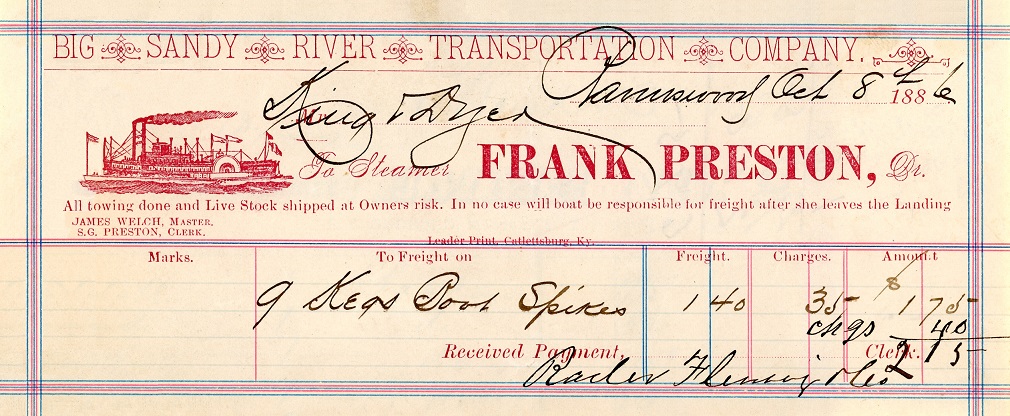 BIG SANDY RIVER TRANSPORTATION COMPANY.
Oct 8th 1886
King & Dyer
To Steamer FRANK PRESTON, Dr.
All towing done and Live Stock shipped at Owners risk. In no case will boat be responsible for freight after she leaves the Landing
JAMES WELCH, MASTER,
S.G. PRESTON, CLERK.
Leader Print, Catlettsburg, Ky.
Marks. To Freight on Freight. Charges. Amount
9 Kegs Boat Spikes 1 40 35 1 75
chgs 40
Received Payment, Clerk. 2 15
Fleming & Co